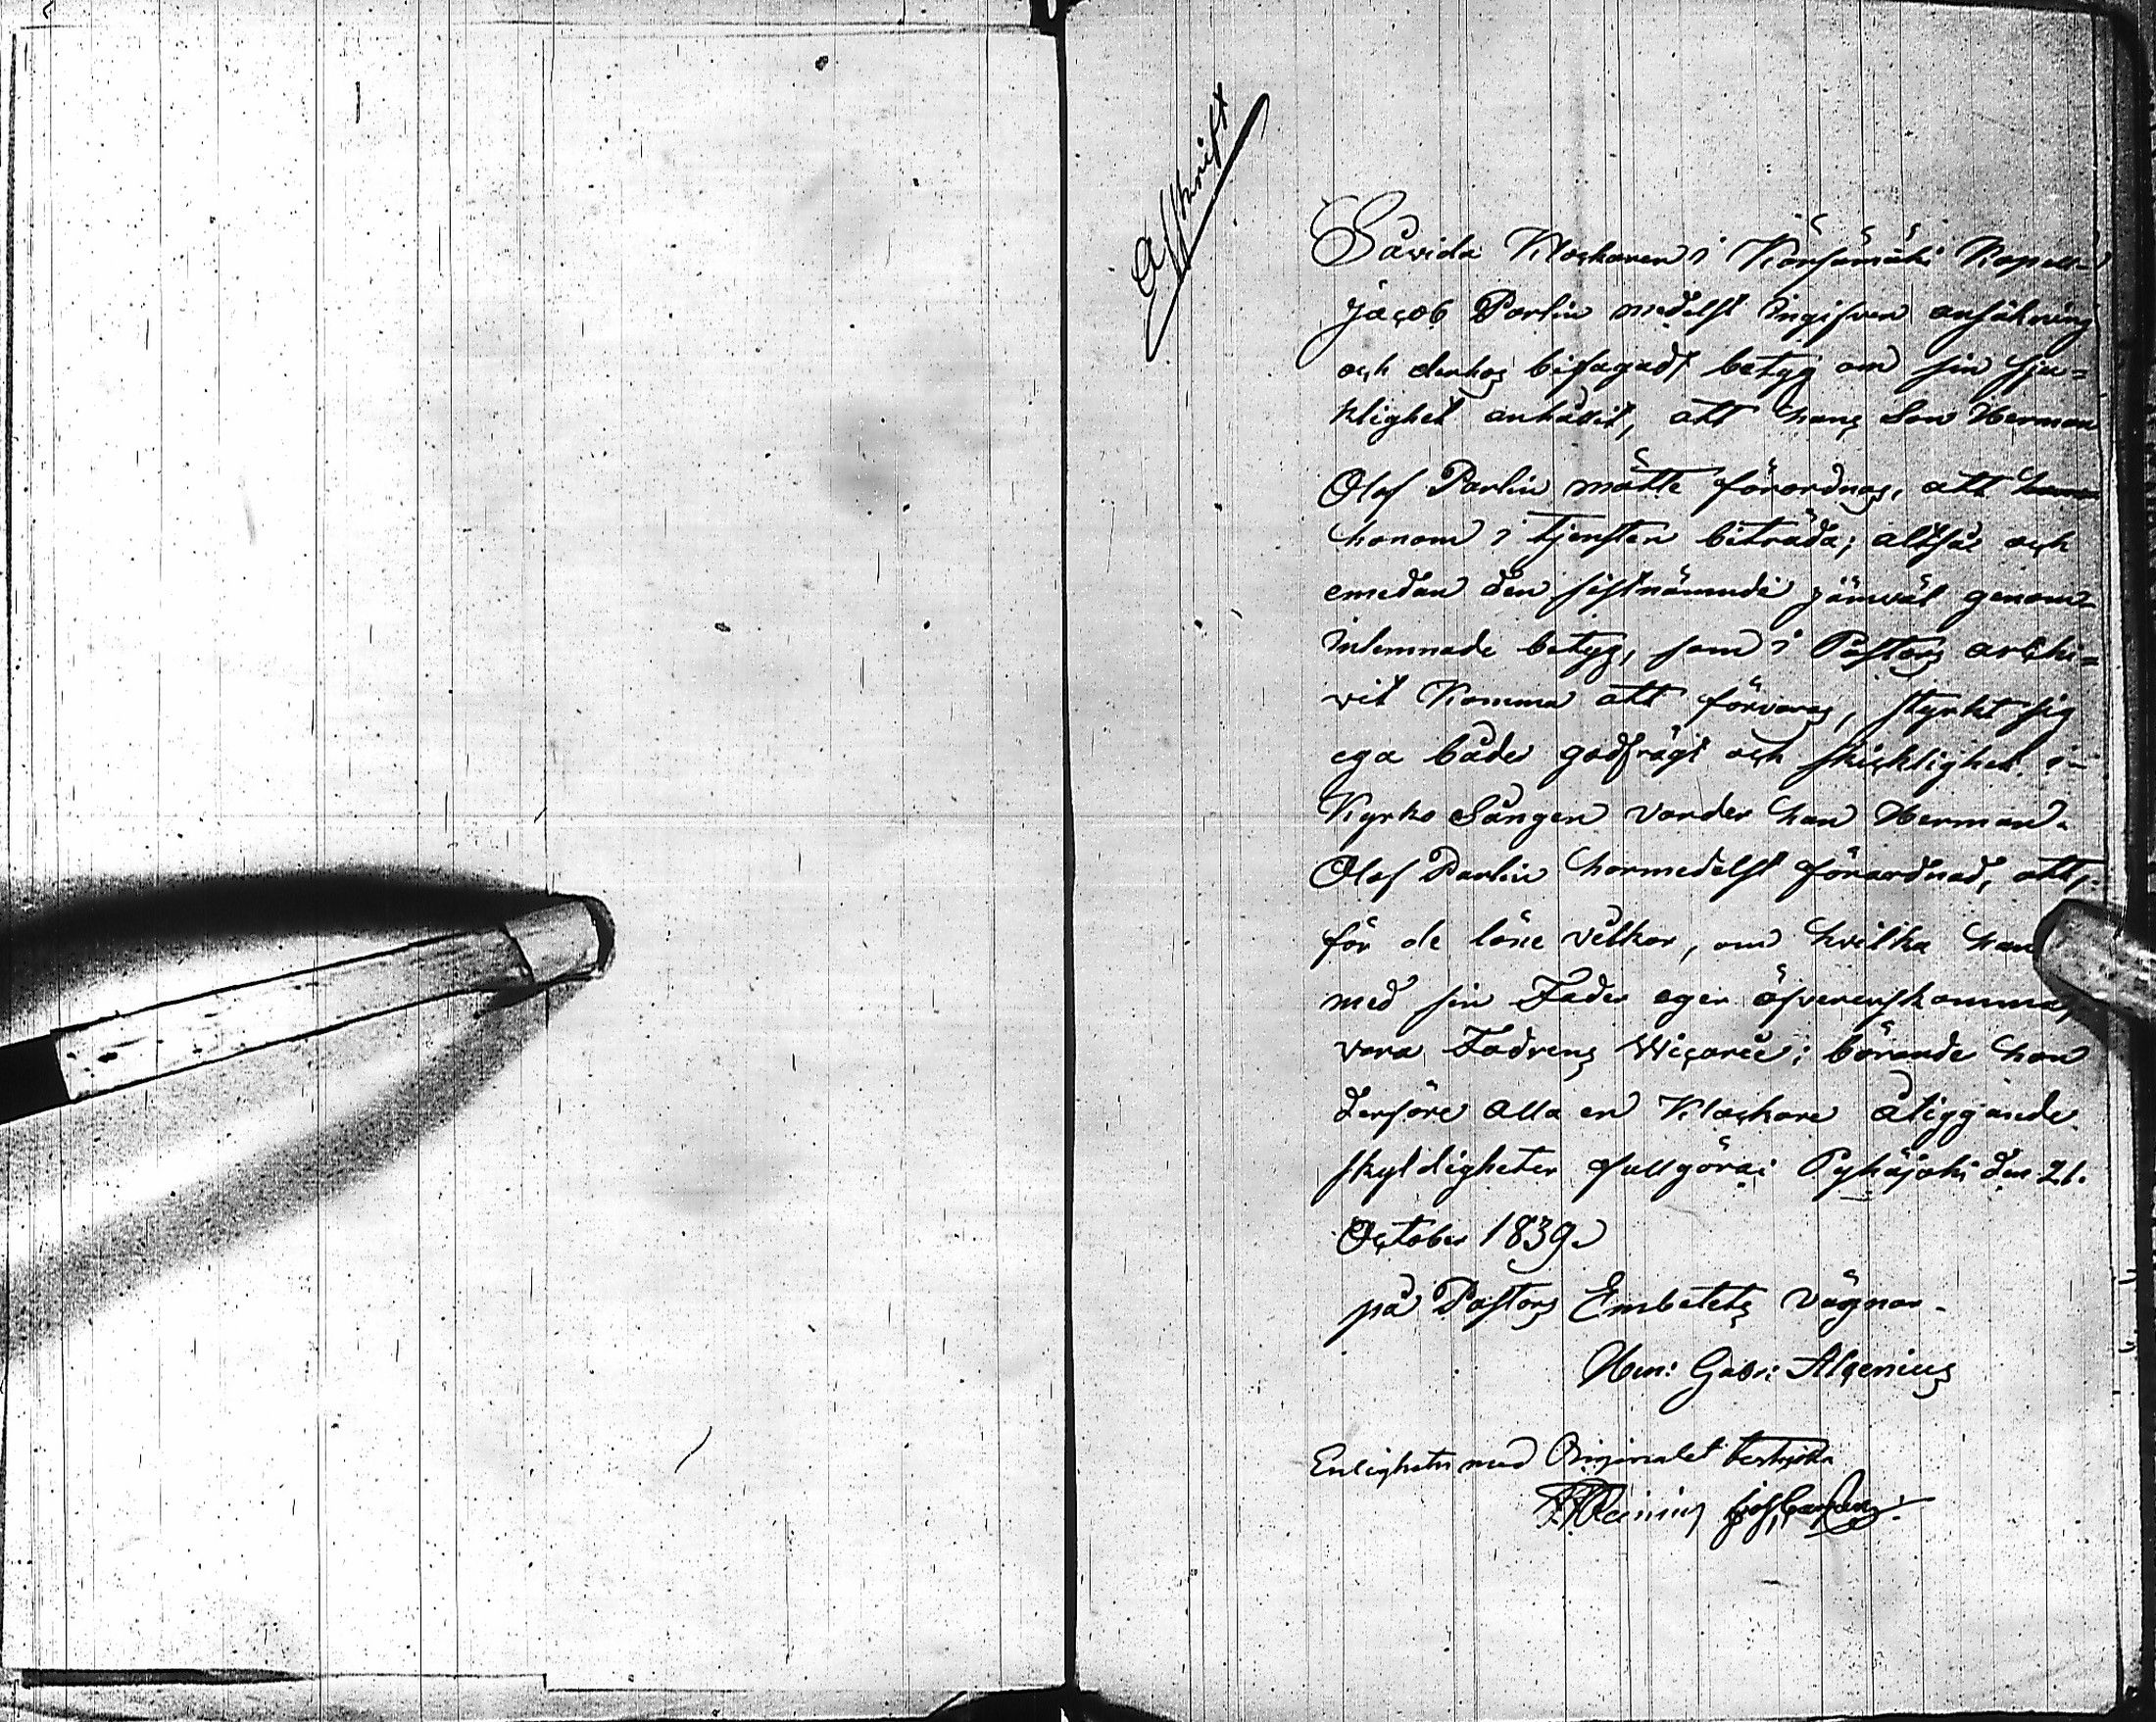 Afskrift
Såvida Klockaren i Kärsämäki Kapell
Jacob Parlin medelst ingifven ansökning
och derhos bifogadt betyg om sin sju=
klighet anhållit, att hans Son Herman
Olof Parlin måtte förordnas, att
honom i tjensten biträda; alltså och
emedan den sistnämnde jämväl genom
inlemnade betyg, som i Pastors archi=
vet komma att förvaras, styrkt sig
ega både godfrägt och skicklighet i
Kyrko Sången varder han Herman
Olof Parlin harmedelst förordnad, att,
för de löne vilkor, om hvilka han
med sin Fader eger öfverenskomma,
vara Fadrens Wicarie; börande han
derföre alla en Klockare åliggande
skyldigheter fullgöra; Pyhäjoki den 21.
October 1839.
på Pastors Embetets vägnar
Hen: Gabr: Alcenius
Enligheten med Originalet bestyrka